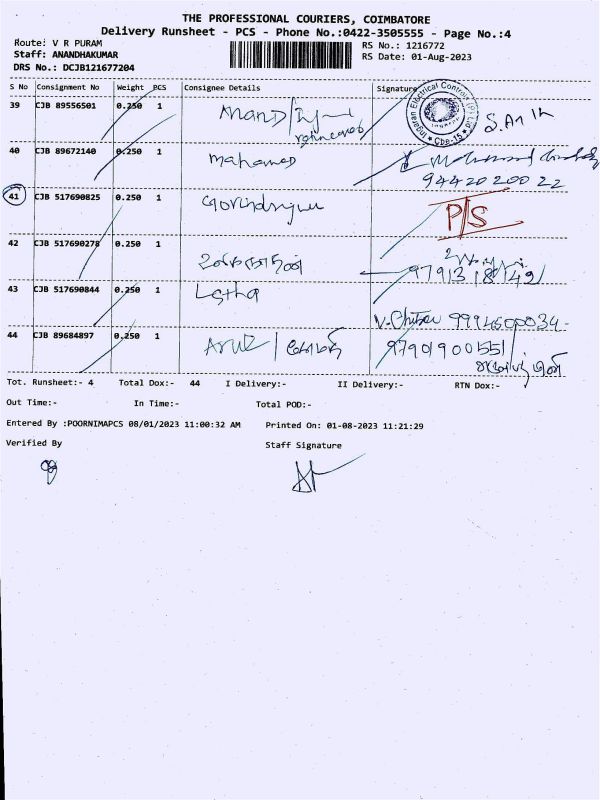 THE PROFESSIONAL COURIERS, COIMBATORE
Delivery Runsheet - PCS - Phone No.:0422-3505555 - Page No.:4
Route: V R PURAM
Staff: ANANDHAKUMAR
DRS No.: DCJB121677204
RS No.: 1216772
RS Date: 01-Aug-2023
S No Consignment No Weight PCS Consignee Details Signature
39 CJB 89556501 0.250 1 Anand
Ingaran Electrical Controls (P) Ltd Cbe-15
40 CJB 89672140 0.250 1 mahamed
94420 200 22
41 CJB 517690825 0.250 1 P/S
42 CJB 517690278 0.250 1
43 CJB 517690844 0.250 1 Latha
V. Chitra
44 CJB 89684897 0.250 1 Arul
97901900551
Tot. Runsheet:- 4 Total Dox:- 44 I Delivery:- II Delivery:- RTN Dox:-
Out Time:- In Time:- Total POD:-
Entered By :POORNIMAPCS 08/01/2023 11:00:32 AM Printed On: 01-08-2023 11:21:29
Verified By Staff Signature